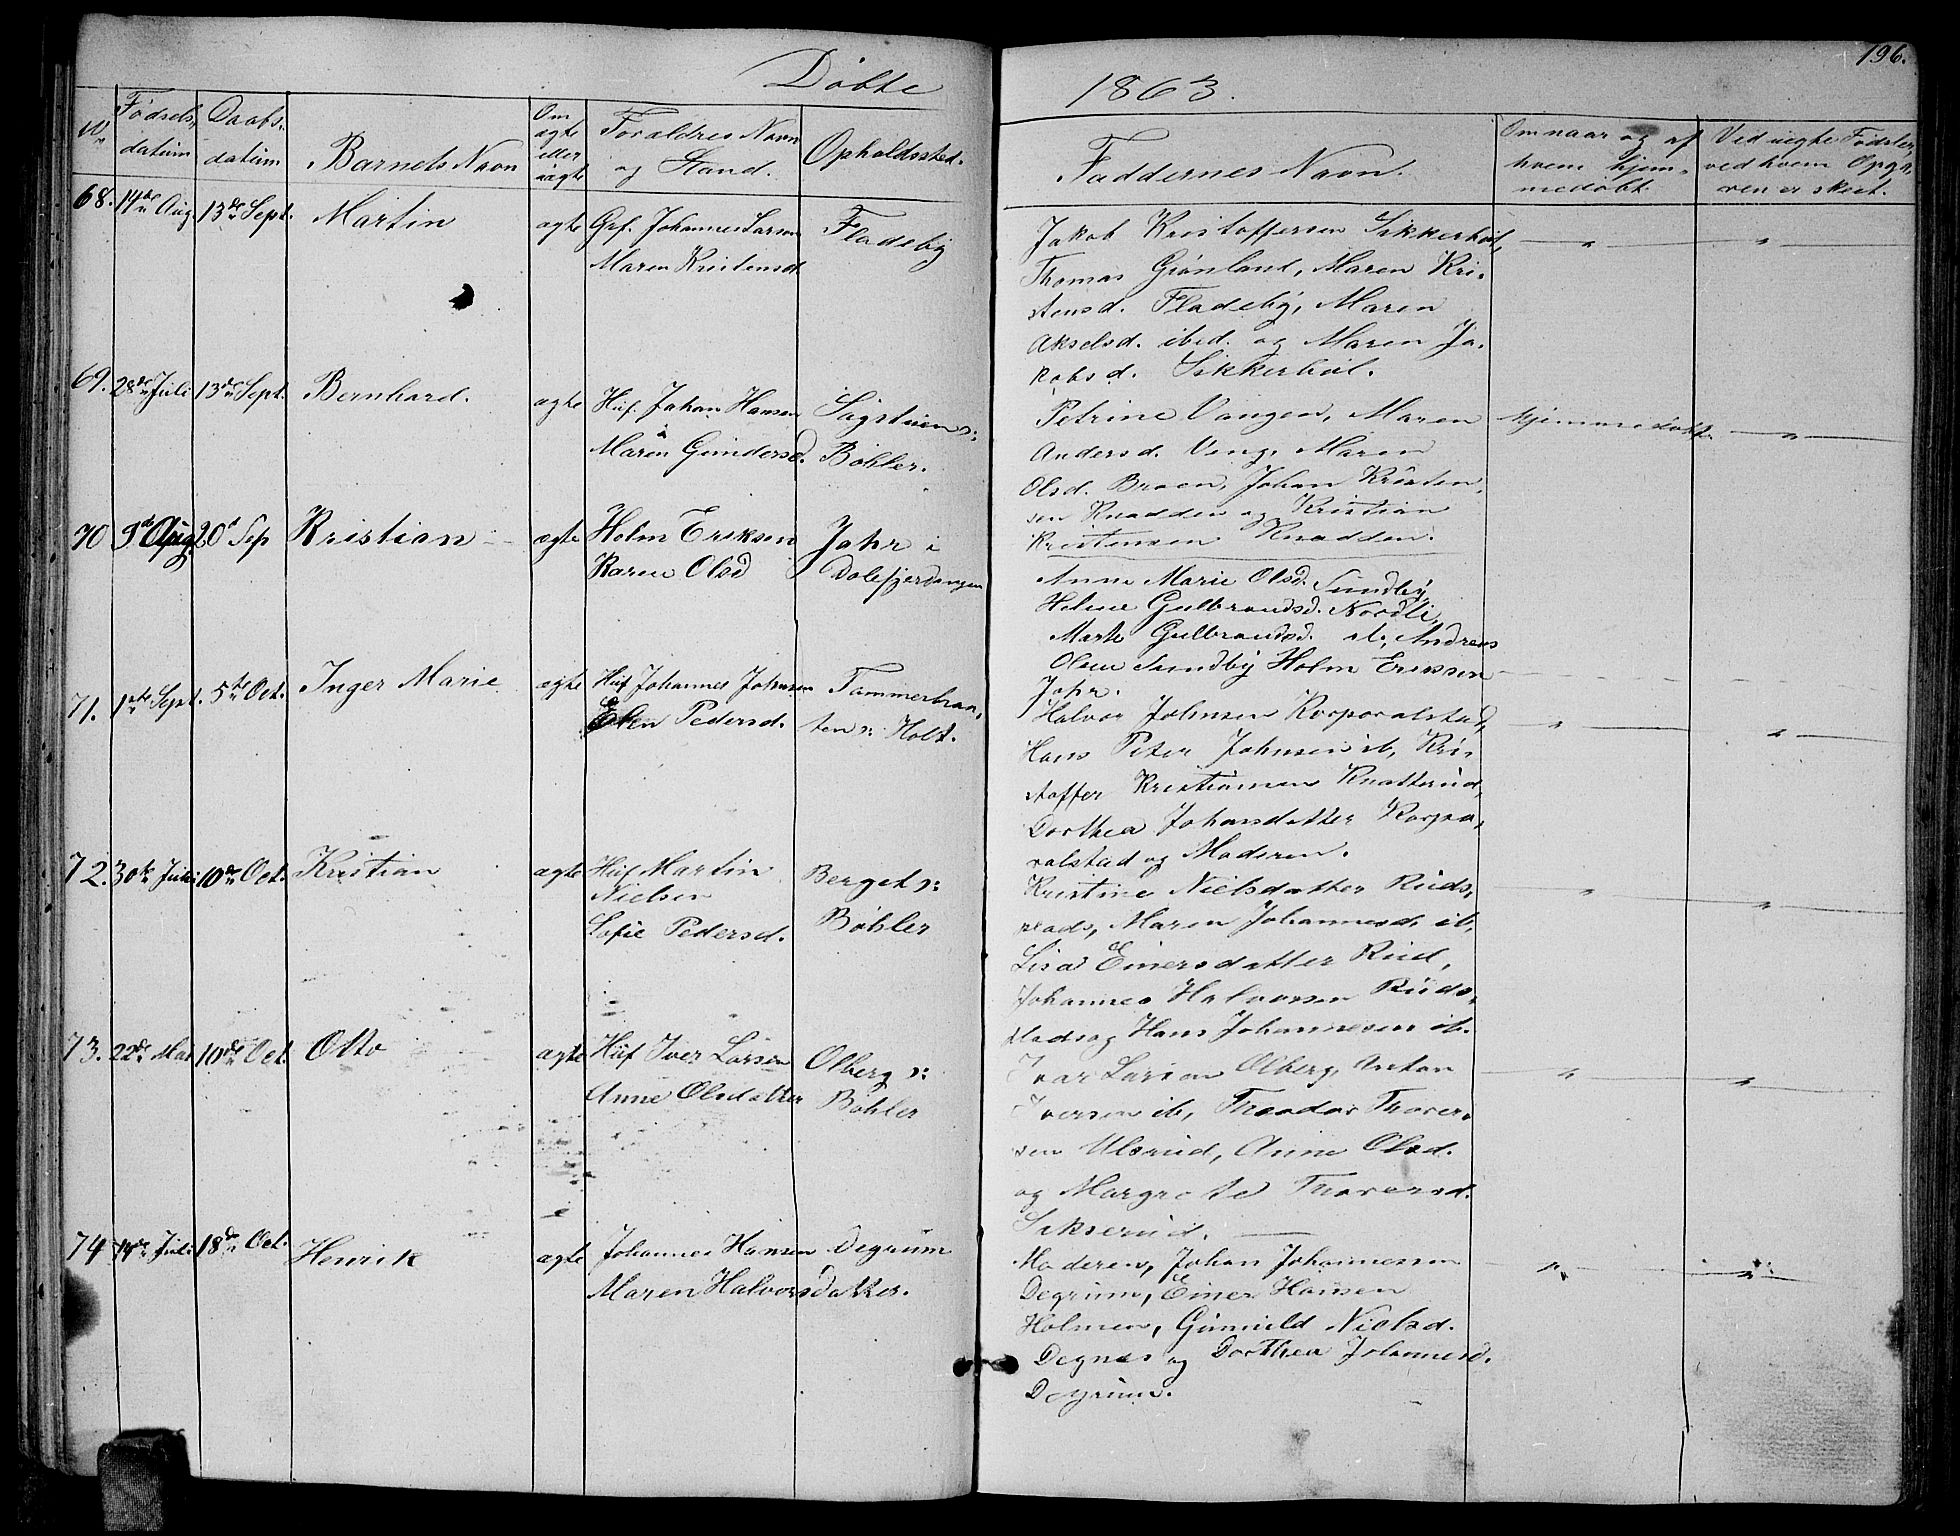 Døbte
1863.
196.
No
Fødsels-
datum
Daabs-
datum
Barnets Navn
Om
ægte
eller
uægte
Forældres Navn
og Stand.
Opholdssted.
Faddernes Navn.
Om naar og af
hvem hjem-
medøbt.
Ved uægte Fødsler,
ved hvem Opga-
ven er skeet.
68. 14de Aug 13de Sept. Martin ægte Gsf. Johannes Larsen Fladeby
Maren Kristensd
Jakob Kristoffersen Sikkerbøl,
Thomas Grønland, Maren Kri-
stensd. Fladeby, Maren
Akselsd. ibid. og Maren Ja-
kobsd. Sikkerbøl.
69. 28de Juli 13de Sept. Bernhard. ægte Huf. Johan Hansen Sagstuen s:
Maren Gundersd. Bøhler.
Petrine Vangen, Maren hjemmedøbt
Andersd. Veng, Maren
Olsd. Braen, Johan Kristen-
sen Knadden og Kristian
Kristensen Knadden.
70 3d Aug 20d Sep Kristian ægte Holm Eriksen Jahr i
Karen Olsd Dalefjerdingen
Anne Marie Olsd. Sundby,
Helene Gulbrandsd. Nordli,
Marte Gulbrandsd. ib, Andreas
Olsen Sundby Holm Eriksen
Jahr.
71. 1ste Sept. 5te Oct. Inger Marie ægte Huf Johannes Johnsen Tammerbraa-
Elen Pedersd. ten s: Holt.
Halvor Johnsen Korporalstad,
Hans Peter Johnsen ib, Kri-
stoffer Kristiansen Knatterud,
Dorthea Johansdatter Korpo-
ralstad og Moderen.
72. 30te Juli 10de Oct. Kristian ægte Huf Martin Berget s:
Nielsen
Sofie Pedersd. Bøhler
Kristine Nielsdatter Ruds-
plads, Maren Johannesd. ib,
Lisa Einersdatter Rud,
Johannes Halvorsen Ruds-
plads og Hans Johannesen ib.
73. 22de Mai 10de Oct. Otto ægte Huf Iver Larsen Olberg s:
Anne Olsdatter Bøhler
Ivar Larsen Olberg, Anton
Iversen ib, Theodor Thorer-
sen Ulsrud, Anne Olsd.
og Margrete Thorersd.
Sikserud.
74 14de Juli 18de Oct. Henrik ægte Johannes Hansen Degrum
Maren Halvorsdatter.
Moderen, Johan Johannessen
Degrum, Einer Hansen
Holmen, Gunnild Nielsd.
Degnes og Dorthea Johannesd.
Degrum.